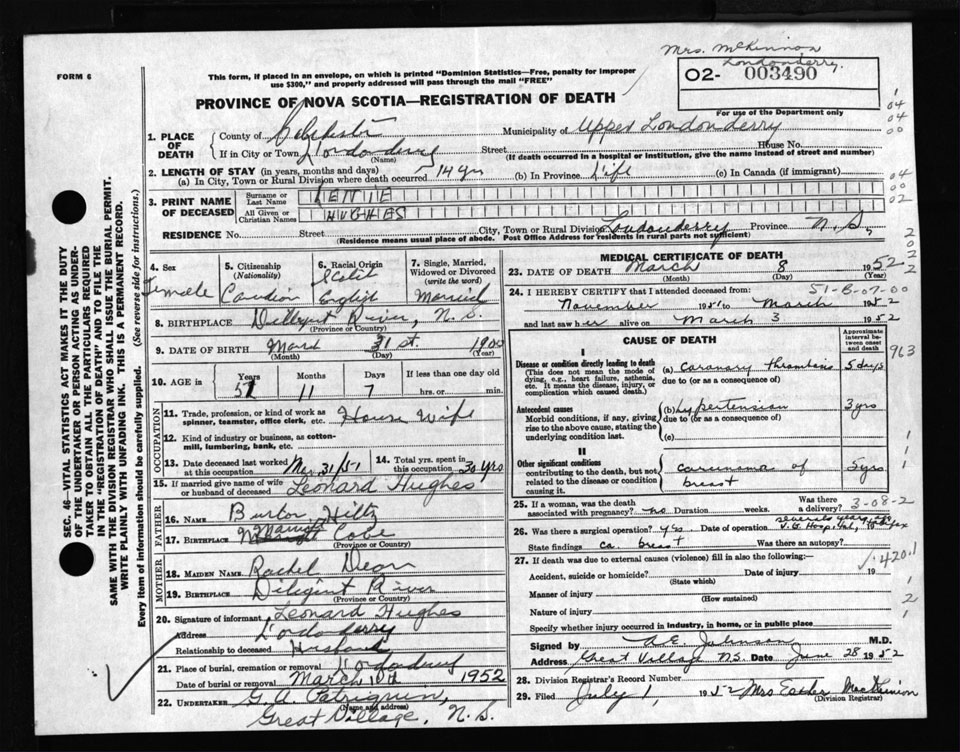 Mrs. McKinnon
Londonderry.
FORM 6
This form, if placed in an envelope, on which is printed "Dominion Statistics—Free, penalty for improper
use $300," and properly addressed will pass through the mail "FREE"
O2- 003490
For use of the Department only
PROVINCE OF NOVA SCOTIA—REGISTRATION OF DEATH
1. PLACE OF DEATH
County of Colchester Municipality of Upper Londonderry
If in City or Town Londonderry (Name) Street House No.
(If death occurred in a hospital or institution, give the name instead of street and number)
2. LENGTH OF STAY (in years, months and days)
(a) In City, Town or Rural Division where death occurred 14 yrs (b) In Province Life (c) In Canada (if immigrant)
3. PRINT NAME OF DECEASED
Surname or Last Name
All Given or Christian Names HUGHES
RESIDENCE No. Street City, Town or Rural Division Londonderry Province N.S,
(Residence means usual place of abode. Post Office Address for residents in rural parts not sufficient)
4. Sex Female
5. Citizenship (Nationality)
6. Racial Origin English
7. Single, Married, Widowed or Divorced (write the word) Married
8. BIRTHPLACE River, N.S. (Province or Country)
9. DATE OF BIRTH 31st. 1900
(Month) (Day) (Year)
10. AGE in Years 51 Months 11 Days 7 If less than one day old hrs. or min.
OCCUPATION
11. Trade, profession, or kind of work as spinner, teamster, office clerk, etc. House Wife
12. Kind of industry or business, as cotton-mill, lumbering, bank, etc.
13. Date deceased last worked at this occupation 31/51 14. Total yrs. spent in this occupation 30 yrs
15. If married give name of wife or husband of deceased Leonard Hughes
FATHER
16. NAME
17. BIRTHPLACE Cove (Province or Country)
MOTHER
18. MAIDEN NAME Rachel
19. BIRTHPLACE Diligint River (Province or Country)
20. Signature of informant Leonard Hughes
Address
Relationship to deceased Husband
21. Place of burial, cremation or removal
Date of burial or removal March 10th 1952
22. UNDERTAKER G.A.
(Name and address)
Great Village, N.S.
MEDICAL CERTIFICATE OF DEATH
23. DATE OF DEATH March 8 1952
(Month) (Day) (Year)
24. I HEREBY CERTIFY that I attended deceased from: 51-B-07-00
November 1951 to March 1952
and last saw her alive on March 3 1952
CAUSE OF DEATH
Approximate interval between onset and death
I
Disease or condition directly leading to death
(This does not mean the mode of dying, e.g., heart failure, asthenia, etc. It means the disease, injury, or complication which caused death.)
(a) Coronary thrombosis 5 days
due to (or as a consequence of)
Antecedent causes
Morbid conditions, if any, giving rise to the above cause, stating the underlying condition last.
(b) hypertension 3 yrs
due to (or as a consequence of)
(c)
II
Other significant conditions
contributing to the death, but not related to the disease or condition causing it.
carcinoma of breast 5 yrs
963
25. If a woman, was the death associated with pregnancy? no Duration weeks. Was there a delivery? 3-08-2
26. Was there a surgical operation? yes Date of operation
State findings ca. breast Was there an autopsy?
27. If death was due to external causes (violence) fill in also the following:—
420.1
Accident, suicide or homicide? (State which) Date of injury 19
Manner of injury (How sustained)
Nature of injury
Specify whether injury occurred in industry, in home, or in public place
Signed by A.E. Johnson M.D.
Address Great Village N.S. Date June 28 1952
28. Division Registrar's Record Number
29. Filed July 1, 1952 Mrs Esther MacKinnon
(Division Registrar)
SEC. 46—VITAL STATISTICS ACT MAKES IT THE DUTY
OF THE UNDERTAKER OR PERSON ACTING AS UNDER-
TAKER TO OBTAIN ALL THE PARTICULARS REQUIRED
IN THE "REGISTRATION OF DEATH" AND TO FILE THE
SAME WITH THE DIVISION REGISTRAR WHO SHALL ISSUE THE BURIAL PERMIT.
WRITE PLAINLY WITH UNFADING INK. THIS IS A PERMANENT RECORD.
Every item of information should be carefully supplied. (See reverse side for instructions.)